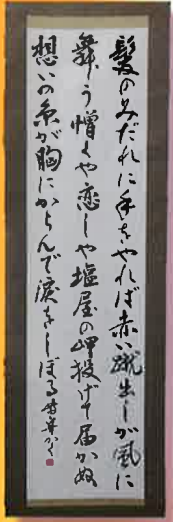 髪のみだれに手をやれば赤い蹴出しが風に
舞う憎や恋しや塩屋の岬投げて届かぬ
想いの糸が胸にからんで涙をしぼる